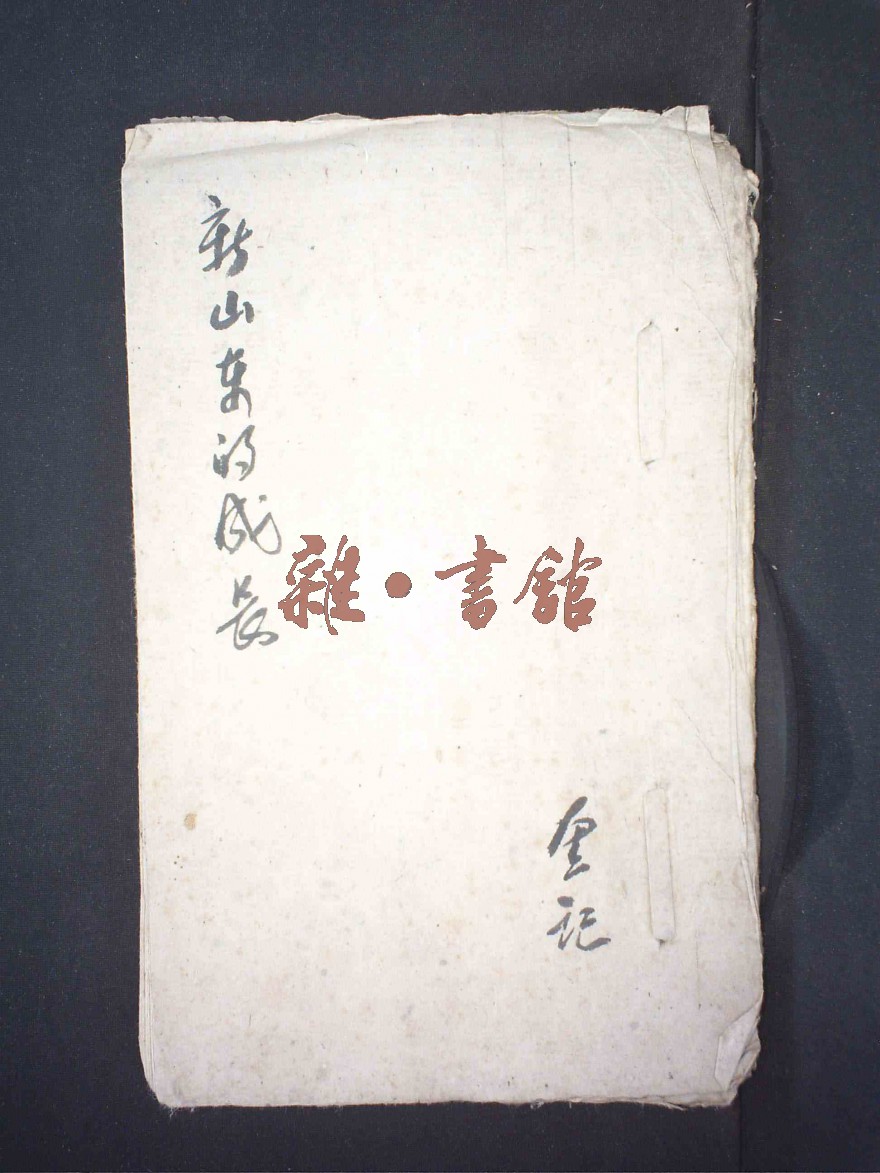 新山东的成长
雜·書館
金记